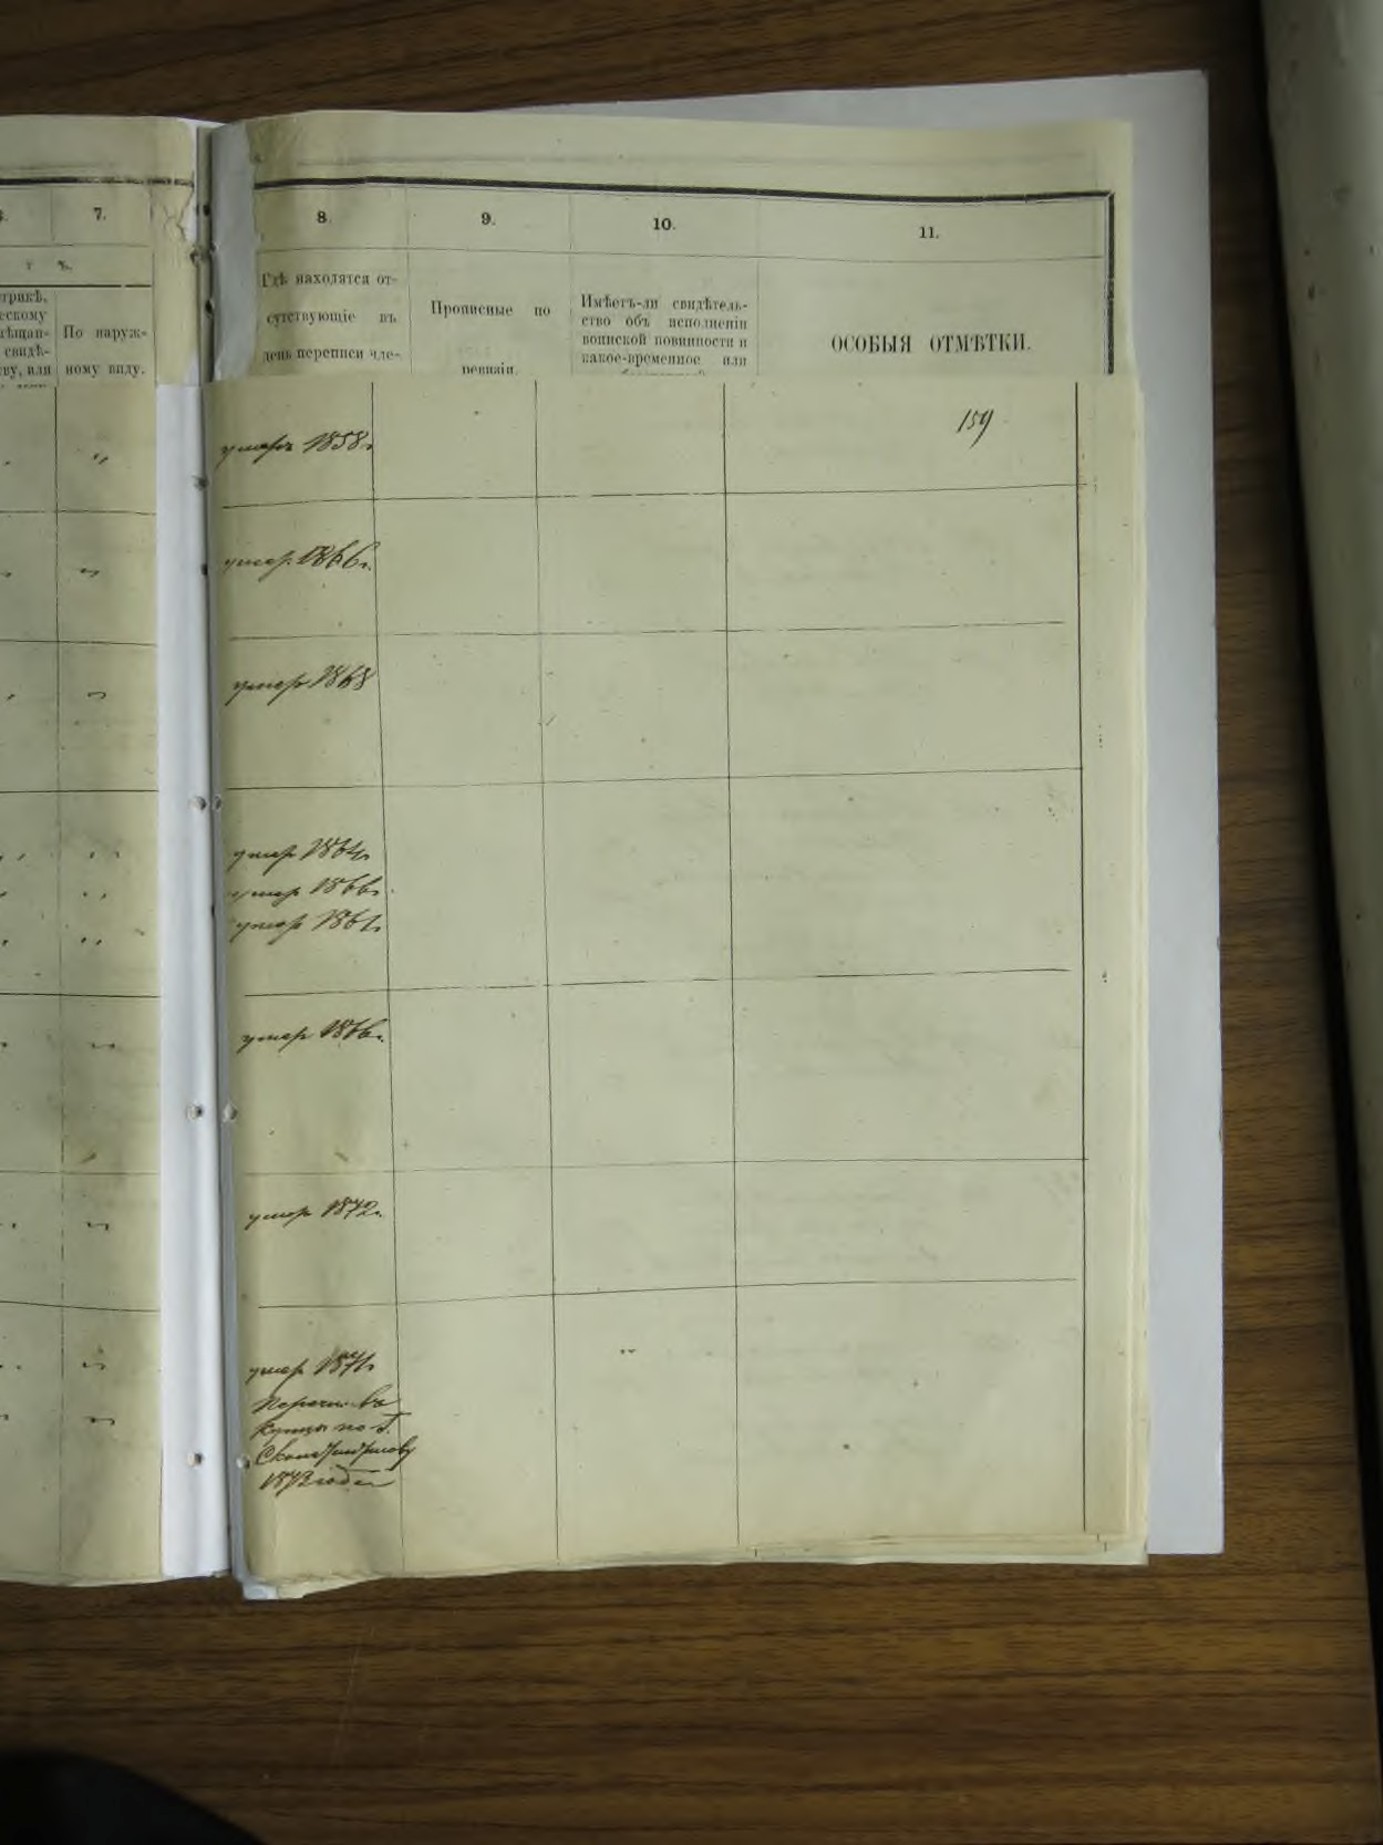 7.
8.
9.
10.
11.
По наруж-
ному виду.
Гдѣ находятся от-
сутствующіе въ
день переписи чле-
Прописные по
ревизіи.
Имѣетъ-ли свидѣтель-
ство объ исполненіи
воинской повинности и
какое-временное или
ОСОБЫЯ ОТМѢТКИ.
159
умеръ 1858г
умер. 1866г.
умер 1868
умер 1864г
умер 1866г
умер 1861г
умер 1876г.
умер 1872г.
умер 1871г
Перечис. въ
Купцы по г.
1872 года